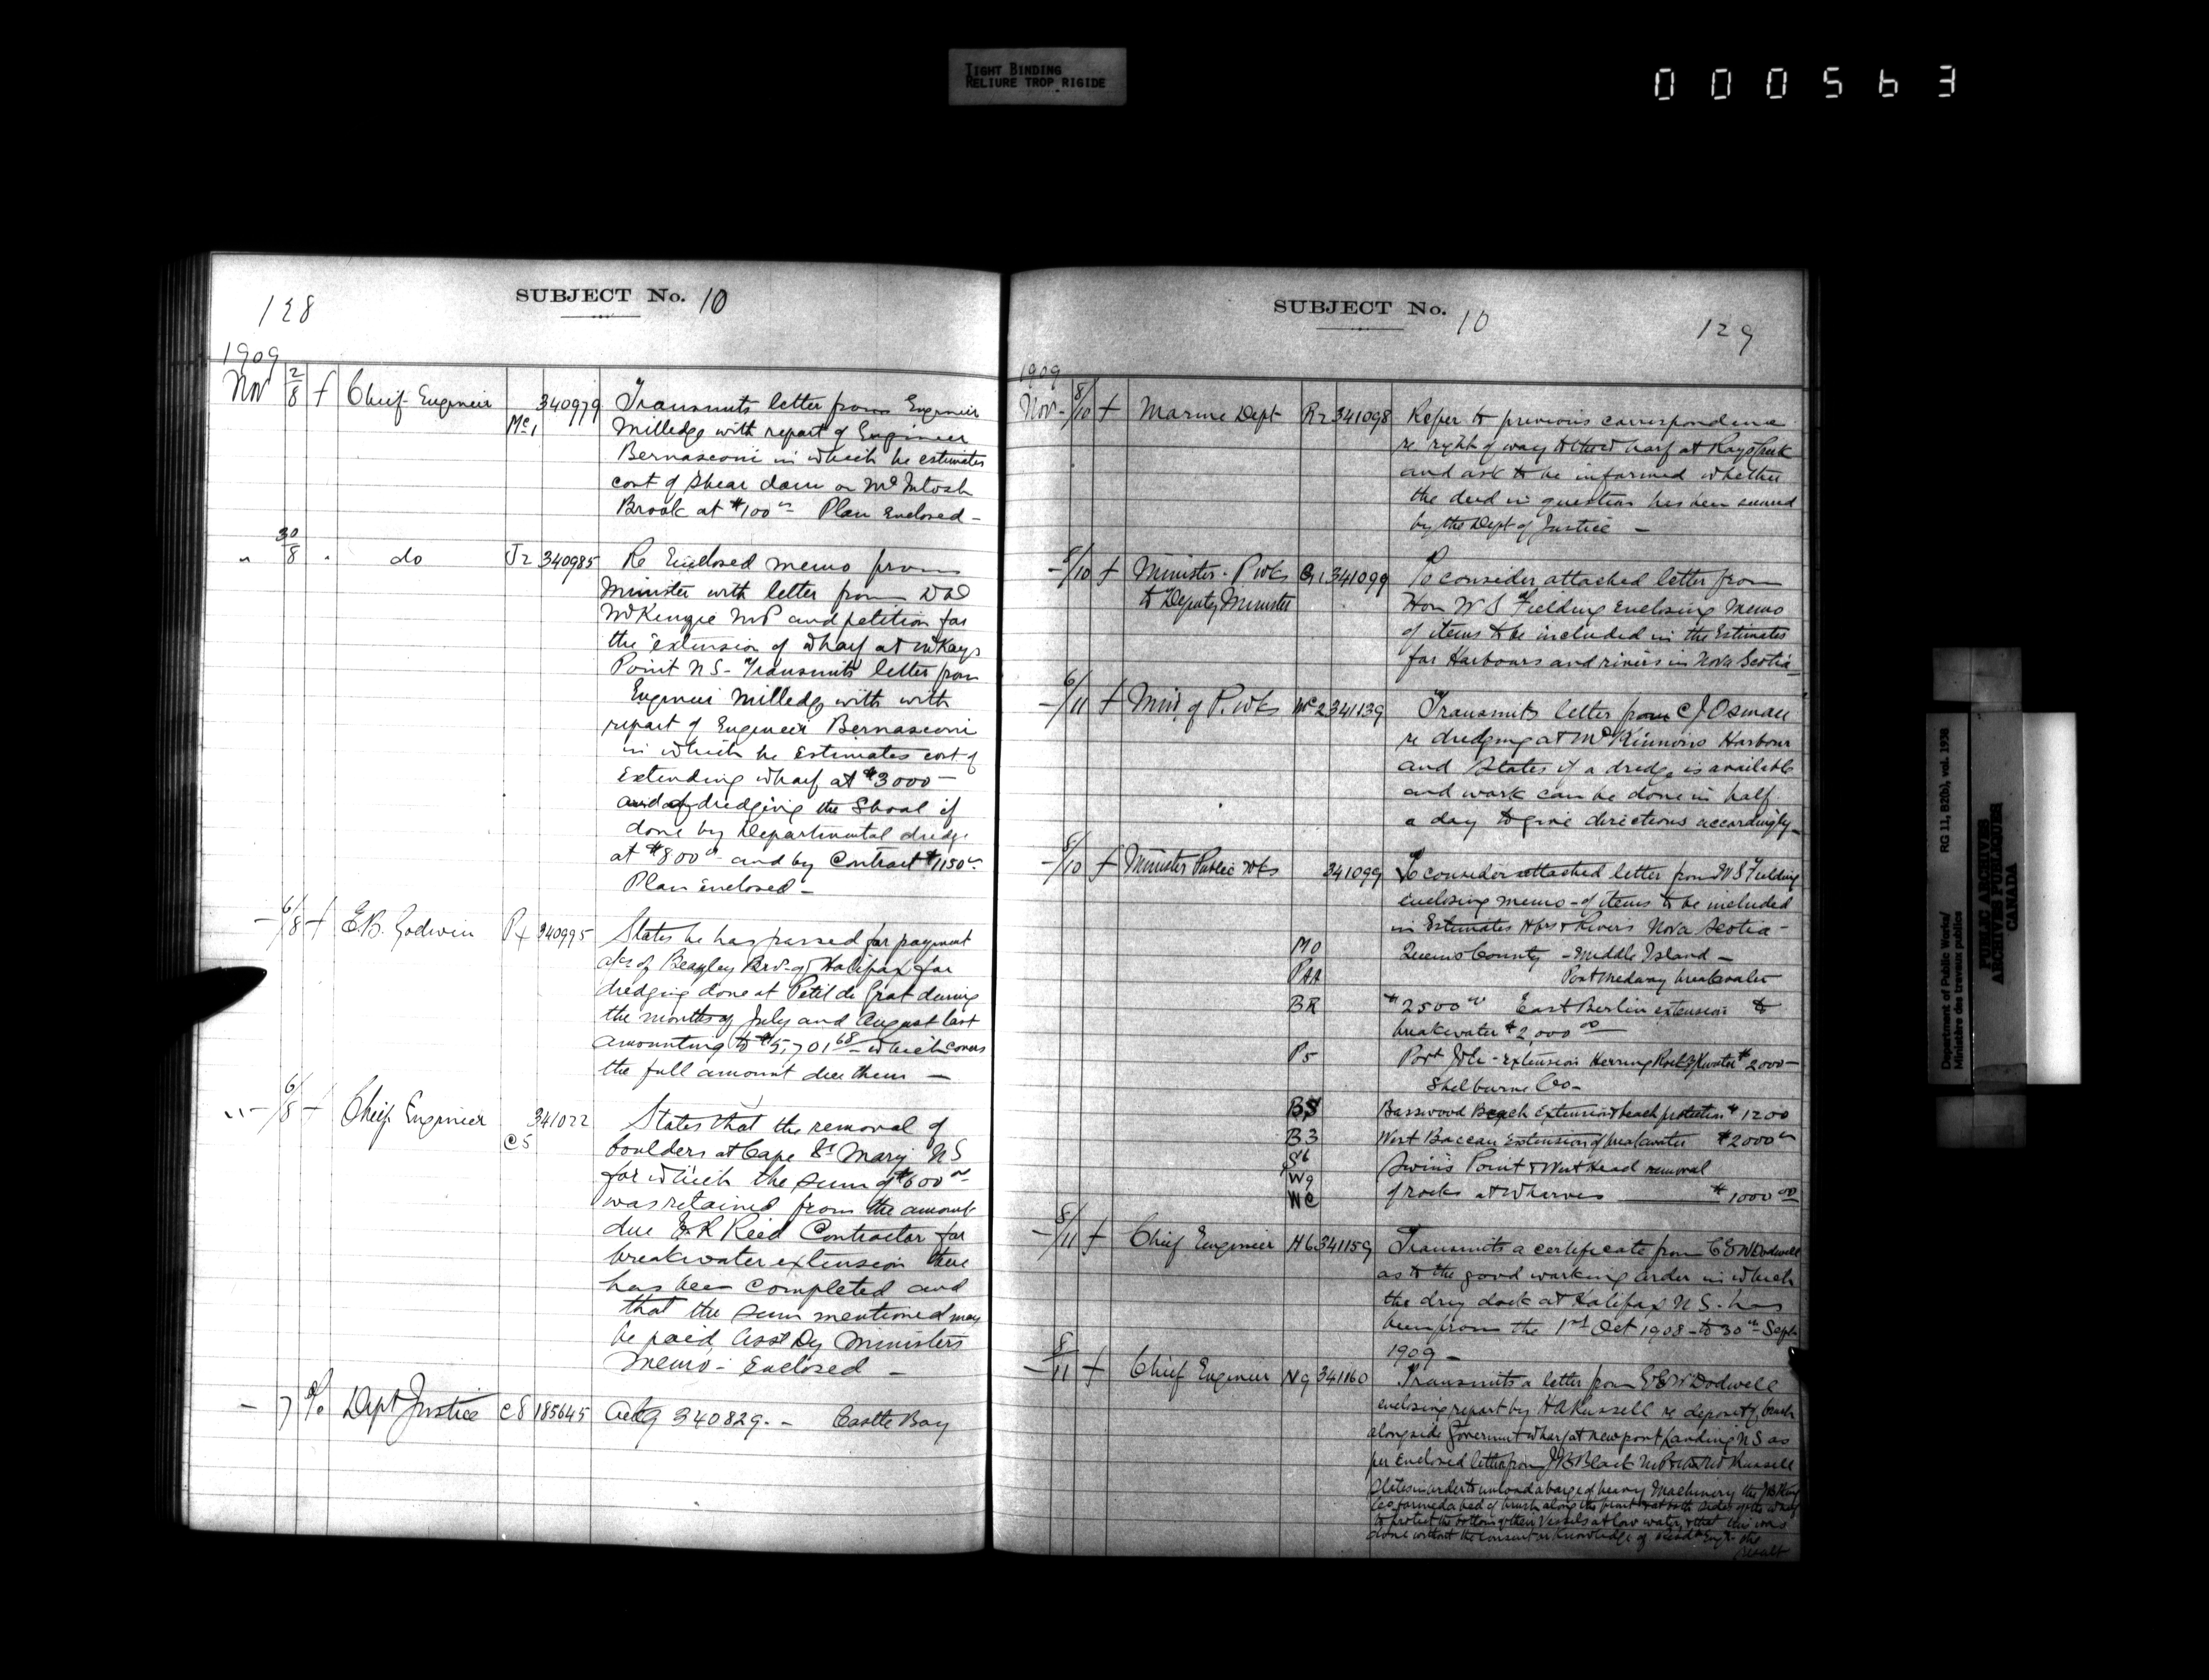 TIGHT BINDING
RELIURE TROP RIGIDE
000563
128
SUBJECT No. 10
1909
Nov 2/8 f Chief Engineer Mc1 340979 Transmits letter from Engineer
Milledge with report of Engineer
Bernasconi in which he estimates
cost of shear dam on McIntosh
Brook at $100 Plan Enclosed -
" 30/8 " do J2 340985 Re Enclosed memo from
Minister with letter from D D
McKenzie MP and petition for
the extension of wharf at McKays
Point N S - Transmits letter from
Engineer Milledge with with
report of Engineer Bernasconi
in which he Estimates cost of
Extending wharf at $3000 -
and of dredging the Shoal if
done by Departmental dredge
at $800 - and by Contract $1150
Plan enclosed -
- 6/8 f E.B. Godwin P4 340995 States he has passed for payment
a/cs of Beazley Bros of Halifax for
dredging done at Petit de Grat during
the months of July and August last
amounting to $5,701 68 - which covers
the full amount due them -
" - 6/8 f Chief Engineer C5 341022 States that the removal of
boulders at Cape St Mary N S
for which the sum of $600
was retained from the amount
due E R Reid Contractor for
breakwater extension there
has been completed and
that the sum mentioned may
be paid, Asst Dy Ministers
Memo - Enclosed -
- 7 Dept Justice C8 185645 Ackg 340829. - Castle Bay
SUBJECT No. 10
129
1909
Nov - 8/10 f Marine Dept R2 341098 Refer to previous correspondence
re right of way to the wharf at Rays Creek
and ask to be informed whether
the deed in question has been secured
by the Dept of Justice -
- 8/10 f Minister - P Wks G1 341099 To consider attached letter from
to Deputy Minister Hon W S Fielding Enclosing Memo
of items to be included in the Estimates
for Harbours and rivers in Nova Scotia
- 6/11 f Min of P. Wks Mc2 341139 Transmits letter from C J Osman
re dredging at McKinnons Harbour
and States if a dredge is available
and work can be done in half
a day to give directions accordingly -
- 8/10 f Minister Public Wks 341099 To consider attached letter from W S Fielding
enclosing memo - of items to be included
in Estimates Hbrs & Rivers Nova Scotia -
M0 Queens County - Middle Island -
PAA Port Medway breakwater
BR $2500 East Berlin extension to
breakwater $2,000 00
P5 Port Joli - extension Herring Rock B/Kwater $2000 -
Shelburne Co -
BS Basswood Beach Extension & beach protection $1200
B3 West Baccaro Extension of breakwater $2000
S6 Swins Point & West Head removal
W9
WC of rocks at wharves $1000 00
- 8/11 f Chief Engineer H6 341159 Transmits a certificate from C E W Dodwell
as to the good working order in which
the dry dock at Halifax N.S. has
been from the 1st Oct 1908 - to 30th Sept
1909 -
- 8/11 f Chief Engineer N9 341160 Transmits a letter from C E W Dodwell
enclosing report by H A Russell re deposit of brush
alongside Government wharf at Newport Landing N S as
per Enclosed letter from J B Black M.P. Russell
States in order to unload a barge of heavy Machinery the J B King
Co formed a bed of brush along the front & at both sides of the wharf
to protect the bottom of their Vessels at low water, & that this was
done without the consent or knowledge of Resdt Engr. the
result
Department of Public Works/
Ministère des travaux publics
RG 11, B2(b), vol. 1938
PUBLIC ARCHIVES
ARCHIVES PUBLIQUES
CANADA